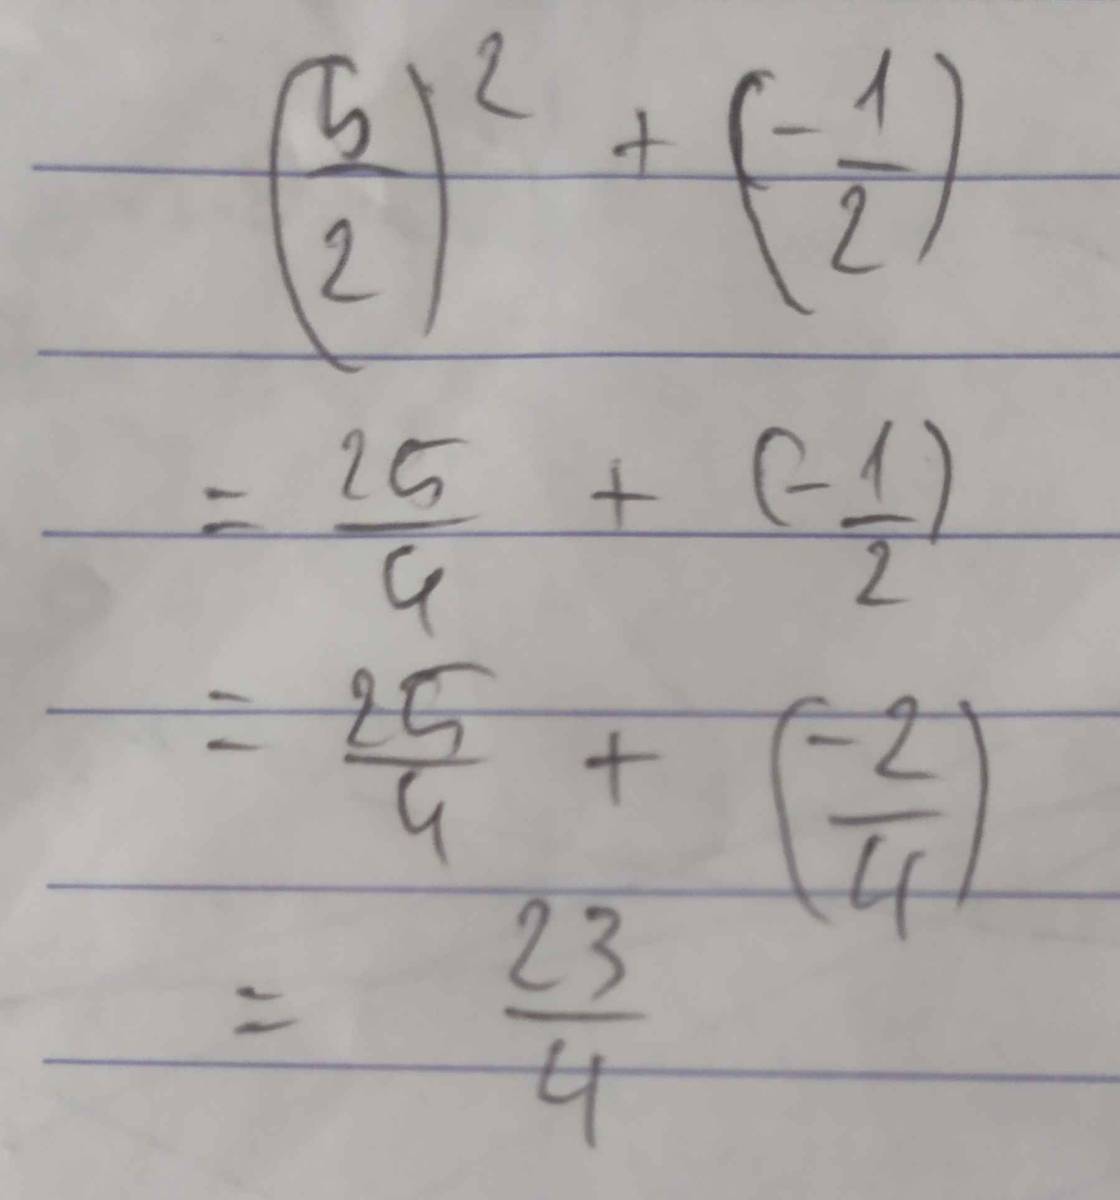 (5/2)² + (-1/2)
= 25/4 + (-1/2)
= 25/4 + (-2/4)
= 23/4